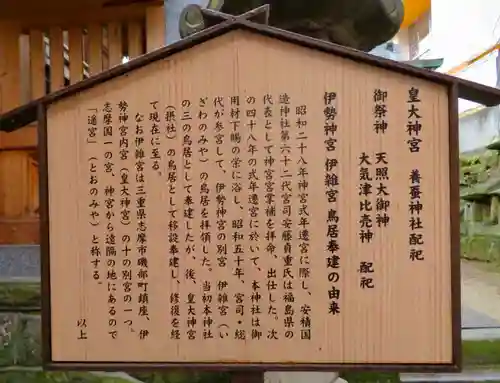 皇大神宮 養蚕神社配祀
御祭神 天照大御神
大気津比売神 配祀
伊勢神宮 伊雑宮 鳥居奉建の由来
昭和二十八年神宮式年遷宮に際し、安積国
造神社第六十二代宮司安藤貞重氏は福島県の
代表として神宮宮掌補を拝命、出仕した。次
の四十八年の式年遷宮に於いて、本神社は御
用材下賜の栄に浴し、昭和五十年、宮司・総
代が参宮して、伊勢神宮の別宮 伊雑宮(い
ざわのみや)の鳥居を拝領した。当初本神社
の三の鳥居として奉建したが、後、皇大神宮
(摂社)の鳥居として移設奉建し、修復を経
て現在に至る。
なお伊雑宮は三重県志摩市磯部町鎮座、伊
勢神宮内宮(皇大神宮)の十の別宮の一つ。
志摩国一の宮、神宮から遠隔の地にあるので
「遙宮」(とおのみや)と称する。
以上